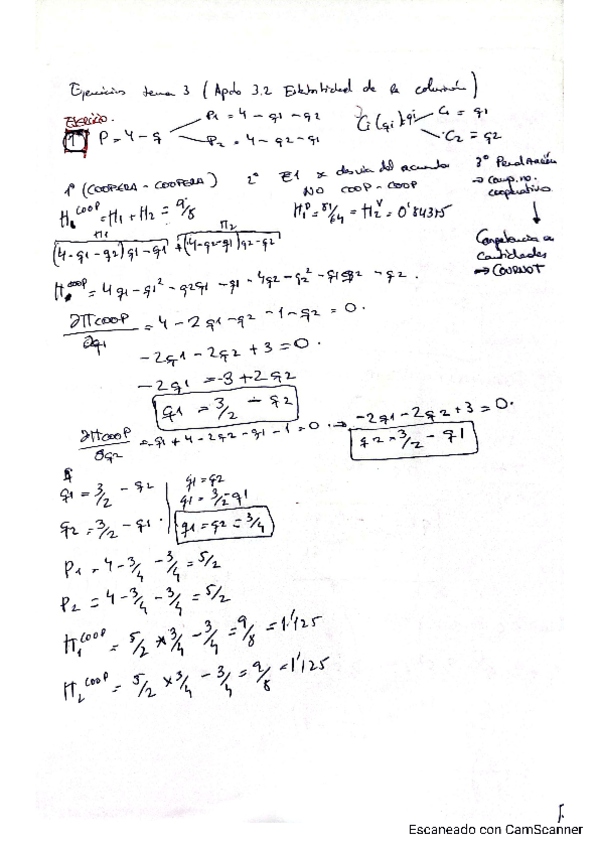 Ejercicios tema 3 (Apdo 3.2 Estabilidad de la colusión)
Ejercicio.
1 P = 4 - q P1 = 4 - q1 - q2 Ci(qi)=qi C1 = q1
P2 = 4 - q2 - q1 C2 = q2
1º (COOPERA - COOPERA) 2º E1 x desvía del acuerdo 3º Penalización
NO COOP - COOP → comp. no cooperativo
Π COOP = Π1 + Π2 = 9/8 Π1D = 81/64 = Π2V = 0'84375
Competencia en cantidades ⇒ COURNOT
Π1 Π2
(4-q1-q2)q1-q1 + (4-q2-q1)q2-q2
Π COOP = 4q1 - q1² - q2q1 - q1 - 4q2 - q2² - q1q2 - q2.
∂ΠCOOP/∂q1 = 4 - 2q1 - q2 - 1 - q2 = 0.
-2q1 - 2q2 + 3 = 0.
-2q1 = -3 + 2q2
q1 = 3/2 - q2
∂ΠCOOP/∂q2 = -q1 + 4 - 2q2 - q1 - 1 = 0. ⇒ -2q1 - 2q2 + 3 = 0.
q2 = 3/2 - q1
q1 = 3/2 - q2 q1 = q2
q1 = 3/2 - q1
q2 = 3/2 - q1. q1 = q2 = 3/4
P1 = 4 - 3/4 - 3/4 = 5/2
P2 = 4 - 3/4 - 3/4 = 5/2
Π1 COOP = 5/2 × 3/4 - 3/4 = 9/8 = 1'125
Π2 COOP = 5/2 × 3/4 - 3/4 = 9/8 = 1'125
1.
Escaneado con CamScanner